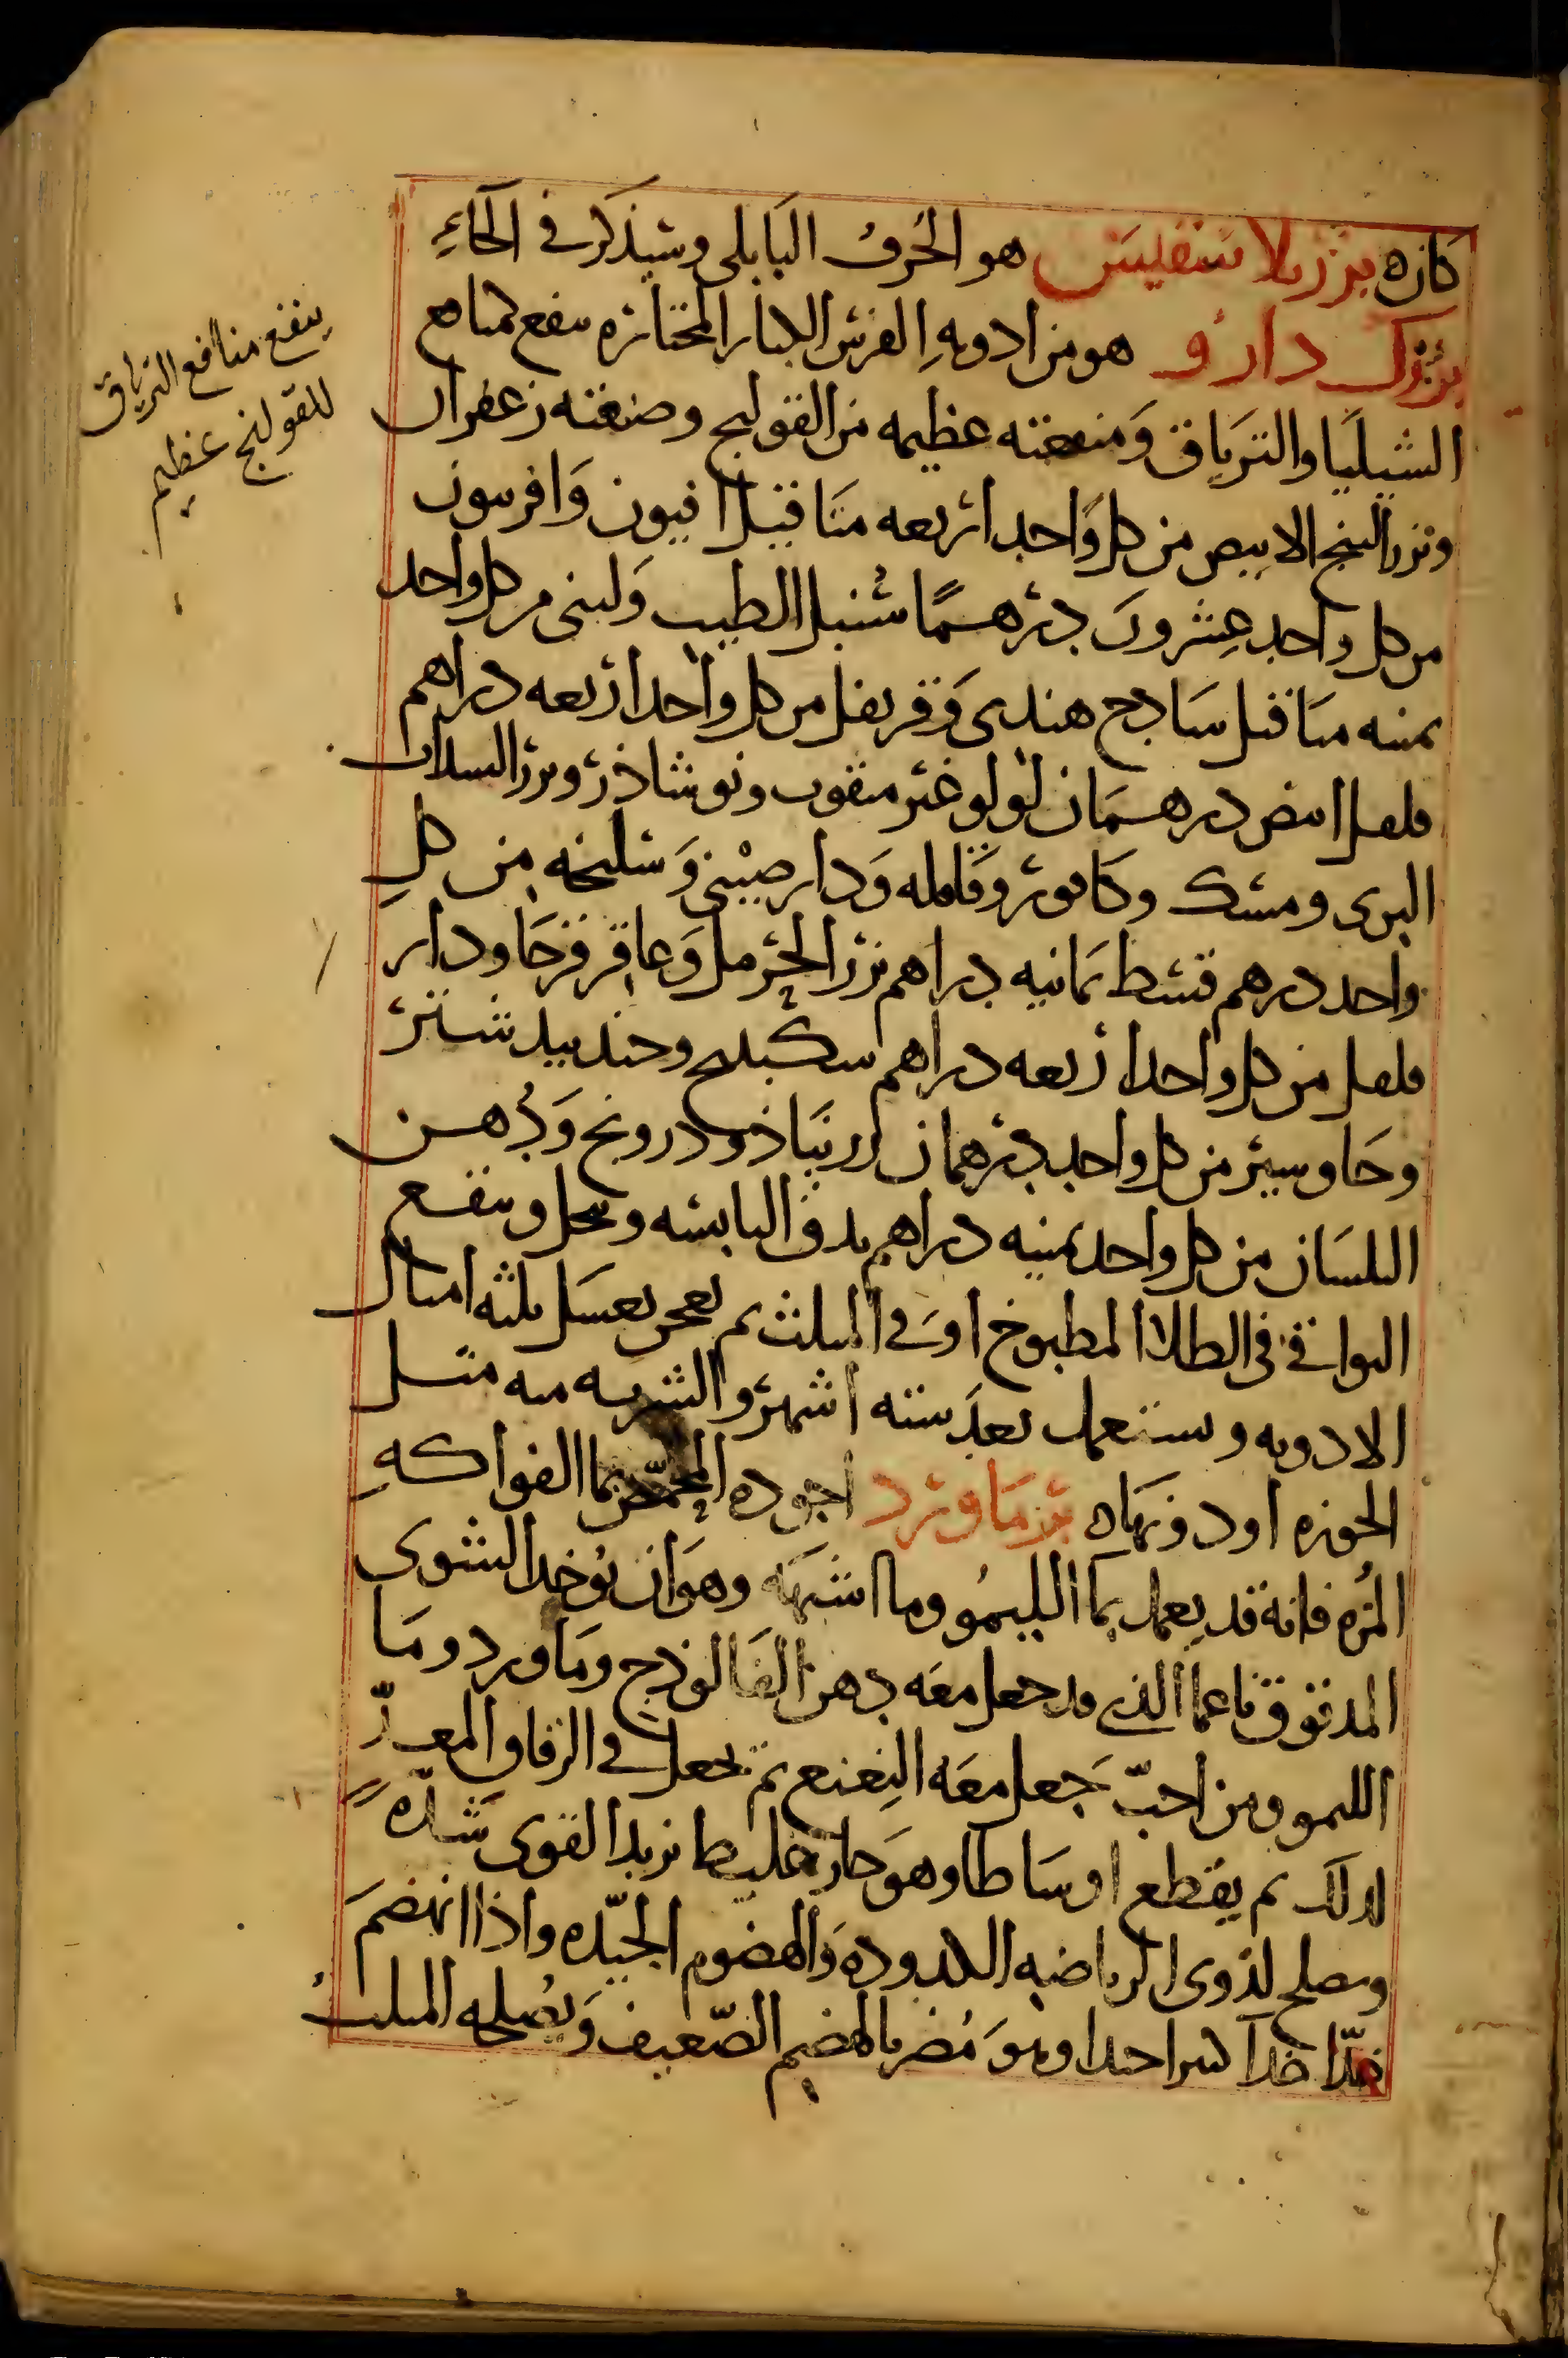 كازه بزر بلا سفليس هو الحُرفُ البَابلى وسَيذكَر فى الحَاءِ
بزرك دارو هو من ادويةِ الفرس الكبار المختاره ينفع لمنافع
الشيليَا والترَياق وَمنفعته عظيمه من القولنج وصنعته زعفران
وبزر البنج الابيض من كل وَاحد اربعه مثَاقيل افيون وَافربيون
من كل واحد عِشرونَ درهمًا سُنبل الطيب وَلبنى من كل واحد
ثمنيه مثاقيل سَاذج هندى وَقرنفل من كل واحد اربعه دراهم
فلفل ابيض درهمَان لؤلؤ غير مثقوب ونوشاذر وبزر السذاب
البرى ومسك وكَافور وقَاقله وَدارصينى وَسليخه من كلِ
واحد درهم قسط ثمانيه دراهم بزر الحرمل وَعاقر قرحَا ودار
فلفل من كل واحد اربعه دراهم سكبينج وجندبيدستر
وجَاوسير من كل واحد درهمان زرنبَاذ ودرونج وَدُهن
البلسَان من كل واحد ثمنيه دراهم يدق اليابسه وينخل وينقع
البواقى فى الطلا المطبوخ اوَ فى المثلث ثم يعجن بعسَل ثلثه امثال
الادويه ويستعمل بعدَ سته اشهر والشربه منه مثل
الجوزه او دونهَا بزمَاورد اجوده المحمّض بما الفواكهِ
المُزه فانه قد يعمل بمَا الليمُو وما اشبهَه وهوَ ان يُوخذ الشوى
المدقوق ناعما الذى قد جعل معَه دهن الفَالوذج ومَاورد ومَا
الليمو ومن احبّ جَعل معَه النِعنع ثم يجعل فى الرقاق المعدّ
لذلك ثم يقطع اوسَاطا وهوَ حار غليظ يزيد القوى شدّه
ويصلح لذوى الرياضه الكدوده وَالهضوم الجيّده واذا انهضمَ
غذّا غذآ كثيرا جدا وهوَ مُضر بالهضم الضّعيف وَيُصلحه المثلثُ
ينفع منافع الترياق
للقولنج عظيم